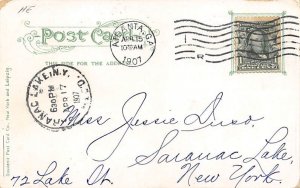 Post Card
THIS SIDE FOR THE ADDRESS
ATLANTA, GA.
APR 15
10 30 AM
1907
SARANAC LAKE, N.Y.
6 30 PM
APR 17
1907
REC'D.
Miss Jessie Dinso
Saranac Lake,
72 Lake St. New York.
Souvenir Post Card Co., New York and Leipzig